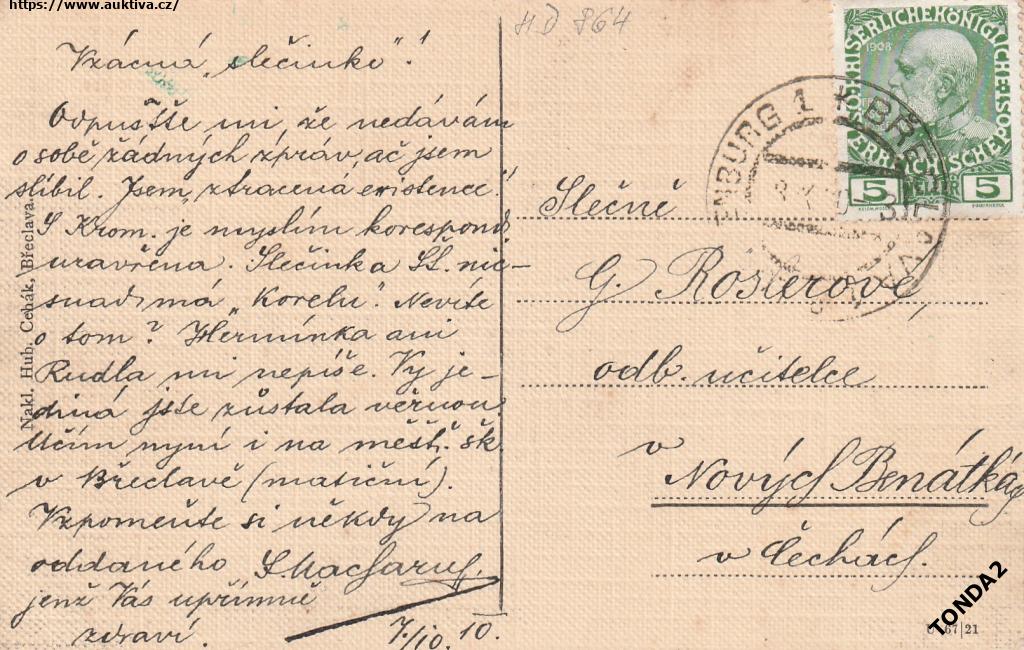 https://www.auktiva.cz/
HD 864
Vzácná „slečinko"!
Odpusťte mi, že nedávám
o sobě žádných zpráv, ač jsem
slíbil. Jsem „ztracená existence".
S Krom. je myslím korespond.
uzavřena. Slečinka Sš. nic-
snad má „Korelu". Nevíte
o tom? Hermínka ani
Rudla mi nepíše. Vy je-
diná jste zůstala věrnou.
Učím nyní i na měšť. šk.
v Břeclavě (matiční).
Vzpomeňte si někdy na
oddaného
jenž Vás upřímně
zdraví. 7./10. 10.
Nakl. Hub. Cehák, Břeclava.
KAISERLICHE KÖNIGLICHE
ÖSTERREICHISCHE POST
1908
5 HELLER 5
ENBURG 1 * BŘE
Slečně
G. Röslerové,
odb. učitelce
v
Nových Benátkách
v Čechách.
TONDA2
67|21